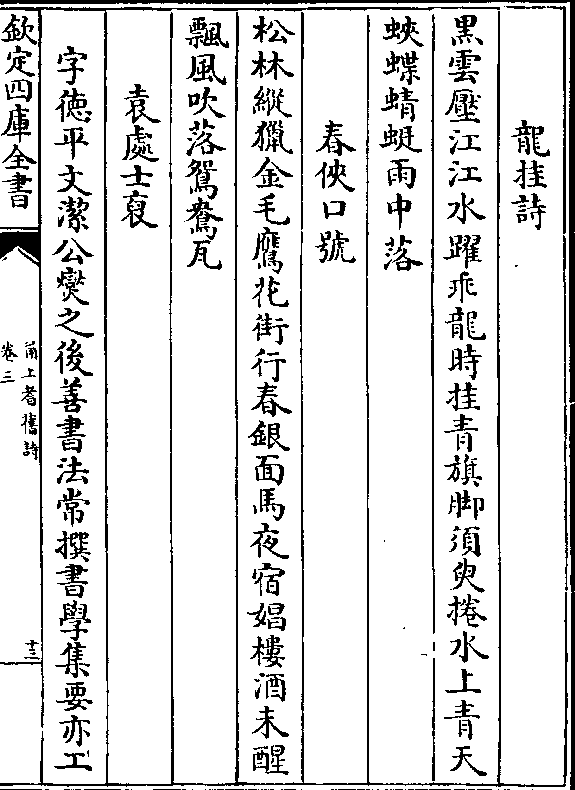 龍挂詩
黒雲壓江江水躍乖龍時挂青旗脚須臾捲水上青天
蛺蝶蜻蜓雨中落
春俠口號
松林縱獵金毛鷹花街行春銀面馬夜宿娼樓酒未醒
飄風吹落鴛鴦瓦
袁處士裒
字德平文潔公爕之後善書法常撰書學集要亦工
欽定四庫全書
甬上耆舊詩
卷三
十三